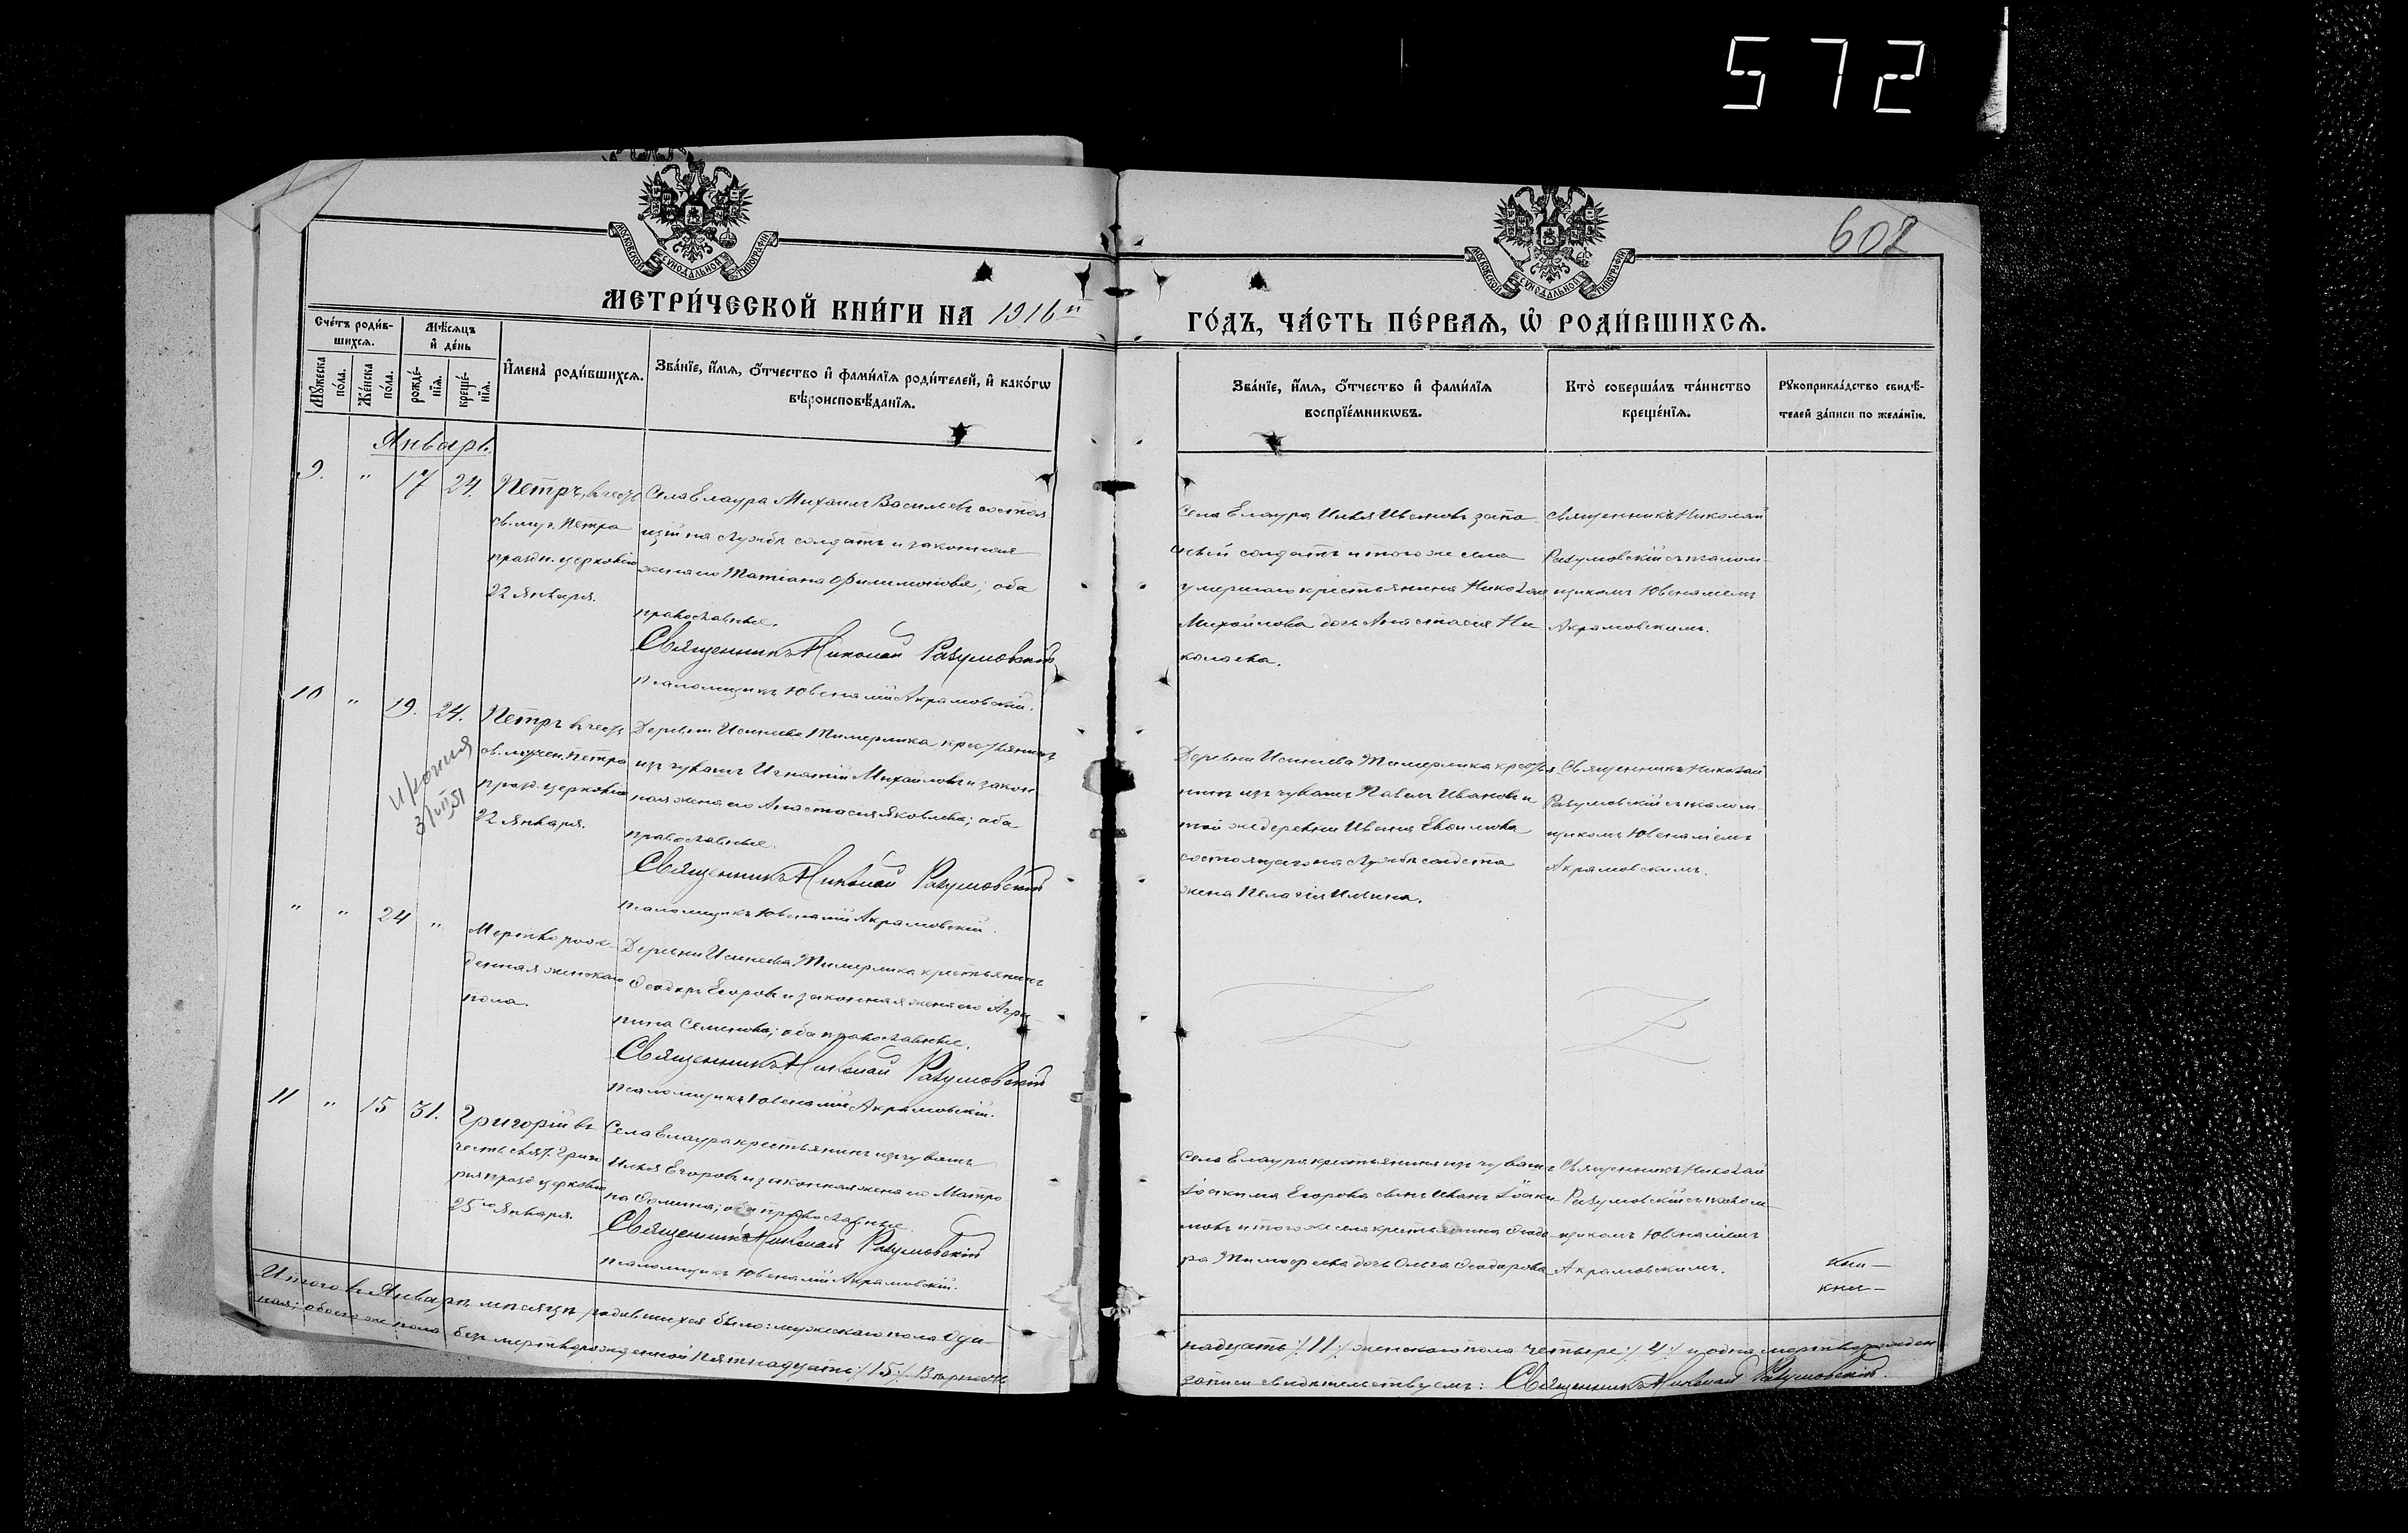 572
608
МОСКОВСКОЙ СУНОДАЛЬНОЙ ТИПОГРАФІИ
МОСКОВСКОЙ СУНОДАЛЬНОЙ ТИПОГРАФІИ
МЕТРИ́ЧЕСКОЙ КНИ́ГИ НА 1916й
ГО́ДЪ, ЧА́СТЬ ПЕ́РВАѦ, Ѡ҆ РОДИ́ВШИХСѦ.
Сче́тъ роди́в-
шихсѧ.
Мꙋ́жеска
по́ла.
Же́нска
по́ла.
Мѣ́сѧцъ
и҆ де́нь
рожде́-
нїѧ.
креще́-
нїѧ.
И҆мена̀ роди́вшихсѧ.
Зва́нїе, и҆́мѧ, ѻ҆́тчество и҆ фами́лїѧ роди́телей, и҆ како́гѡ
вѣроисповѣ́данїѧ.
Зва́нїе, и҆́мѧ, ѻ҆́тчество и҆ фами́лїѧ
воспрїе́мникѡвъ.
Кто̀ соверша́лъ та́инство
креще́нїѧ.
Рꙋкоприкла́дство свидѣ́-
телей за́писи по жела́нїю.
Январь.
9. " 17 24.
Петръ, въ честь
св. муч. Петра
праздн. церковію
22 Января.
Села Елаура Михаилъ Васильевъ состоя
щій на службѣ солдатъ и законная
жена его Татіана Филимонова; оба
православные.
Священникъ Николай Разумовскій
Псаломщикъ Ювеналій Акрамовскій.
Села Елаура Илья Ивановъ запа-
сный солдатъ и того же села
умершаго крестьянина Николая
Михайлова дочь Анастасія Ни-
колаева.
Священникъ Николай
Разумовскій съ псалом-
щикомъ Ювеналіемъ
Акрамовскимъ.
10 " 19. 24.
Петръ въ честь
св. мучен. Петра
празд. церковію
22 Января.
И копия
3/VII 51
Деревни Исинева Тимерлика крестьянинъ
изъ чувашъ Игнатій Михайловъ и закон
ная жена его Анастасія Яковлева; оба
православные.
Священникъ Николай Разумовскій
Псаломщикъ Ювеналій Акрамовскій.
Деревни Исинева Тимерлика крестья-
нинъ изъ чувашъ Павелъ Ивановъ и
той же деревни Ивана Евдокимова
состоящаго на службѣ солдата
жена Пелагія Ильина.
Священникъ Николай
Разумовскій съ псалом-
щикомъ Ювеналіемъ
Акрамовскимъ.
" " 24 "
Мертворож-
денная женскаго
пола.
Деревни Исинева Тимерлика крестьянинъ
Ѳеодоръ Егоровъ и законная жена его Агри-
пина Семенова; оба православные.
Священникъ Николай Разумовскій
Псаломщикъ Ювеналій Акрамовскій.
11 " 15 31.
Григорій въ
честь свят. Григо
рія празд. церковію
25го Января.
Села Елаура крестьянинъ изъ чувашъ
Илья Егоровъ и законная жена его Матро
на Ѳомина; оба православные.
Священникъ Николай Разумовскій
Псаломщикъ Ювеналій Акрамовскій.
Села Елаура крестьянина изъ чувашъ
Іоакима Егорова сынъ Иванъ Іоаки-
мовъ и того же села крестьянина Ѳеодо-
ра Тимофеева дочь Ольга Ѳеодорова
Священникъ Николай
Разумовскій съ псалом-
щикомъ Ювеналіемъ
Акрамовскимъ.
Итого въ Январѣ мѣсяцѣ родившихся было: мужескаго пола оди-
надцать ./. 11 ./. женскаго пола четыре ./. 4 ./. и одна мертворожден
ная; обоего же пола безъ мертворожденной пятнадцать ./. 15 ./. Вѣрность
записи свидѣтельствуемъ: Священникъ Николай Разумовскій.